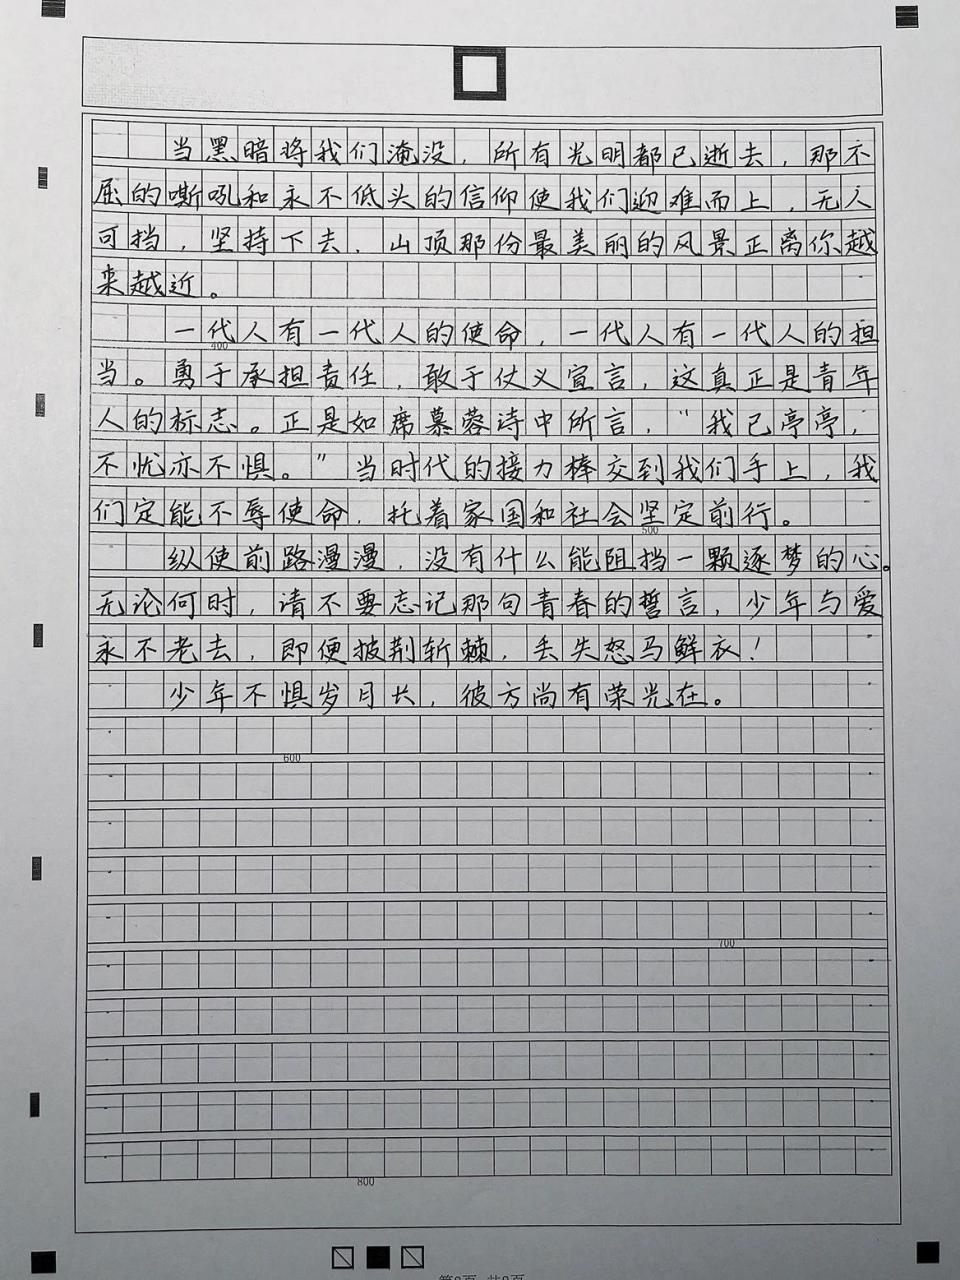 当黑暗将我们淹没，所有光明都已逝去，那不
屈的嘶吼和永不低头的信仰使我们迎难而上，无人
可挡，坚持下去，山顶那份最美丽的风景正离你越
来越近。
一代人有一代人的使命，一代人有一代人的担
400
当。勇于承担责任，敢于仗义宣言，这真正是青年
人的标志。正是如席慕蓉诗中所言，“我已亭亭，
不忧亦不惧。”当时代的接力棒交到我们手上，我
们定能不辱使命，托着家国和社会坚定前行。
500
纵使前路漫漫，没有什么能阻挡一颗逐梦的心。
无论何时，请不要忘记那句青春的誓言，少年与爱
永不老去，即便披荆斩棘，丢失怒马鲜衣！
少年不惧岁月长，彼方尚有荣光在。
600
700
800
第2页 共2页